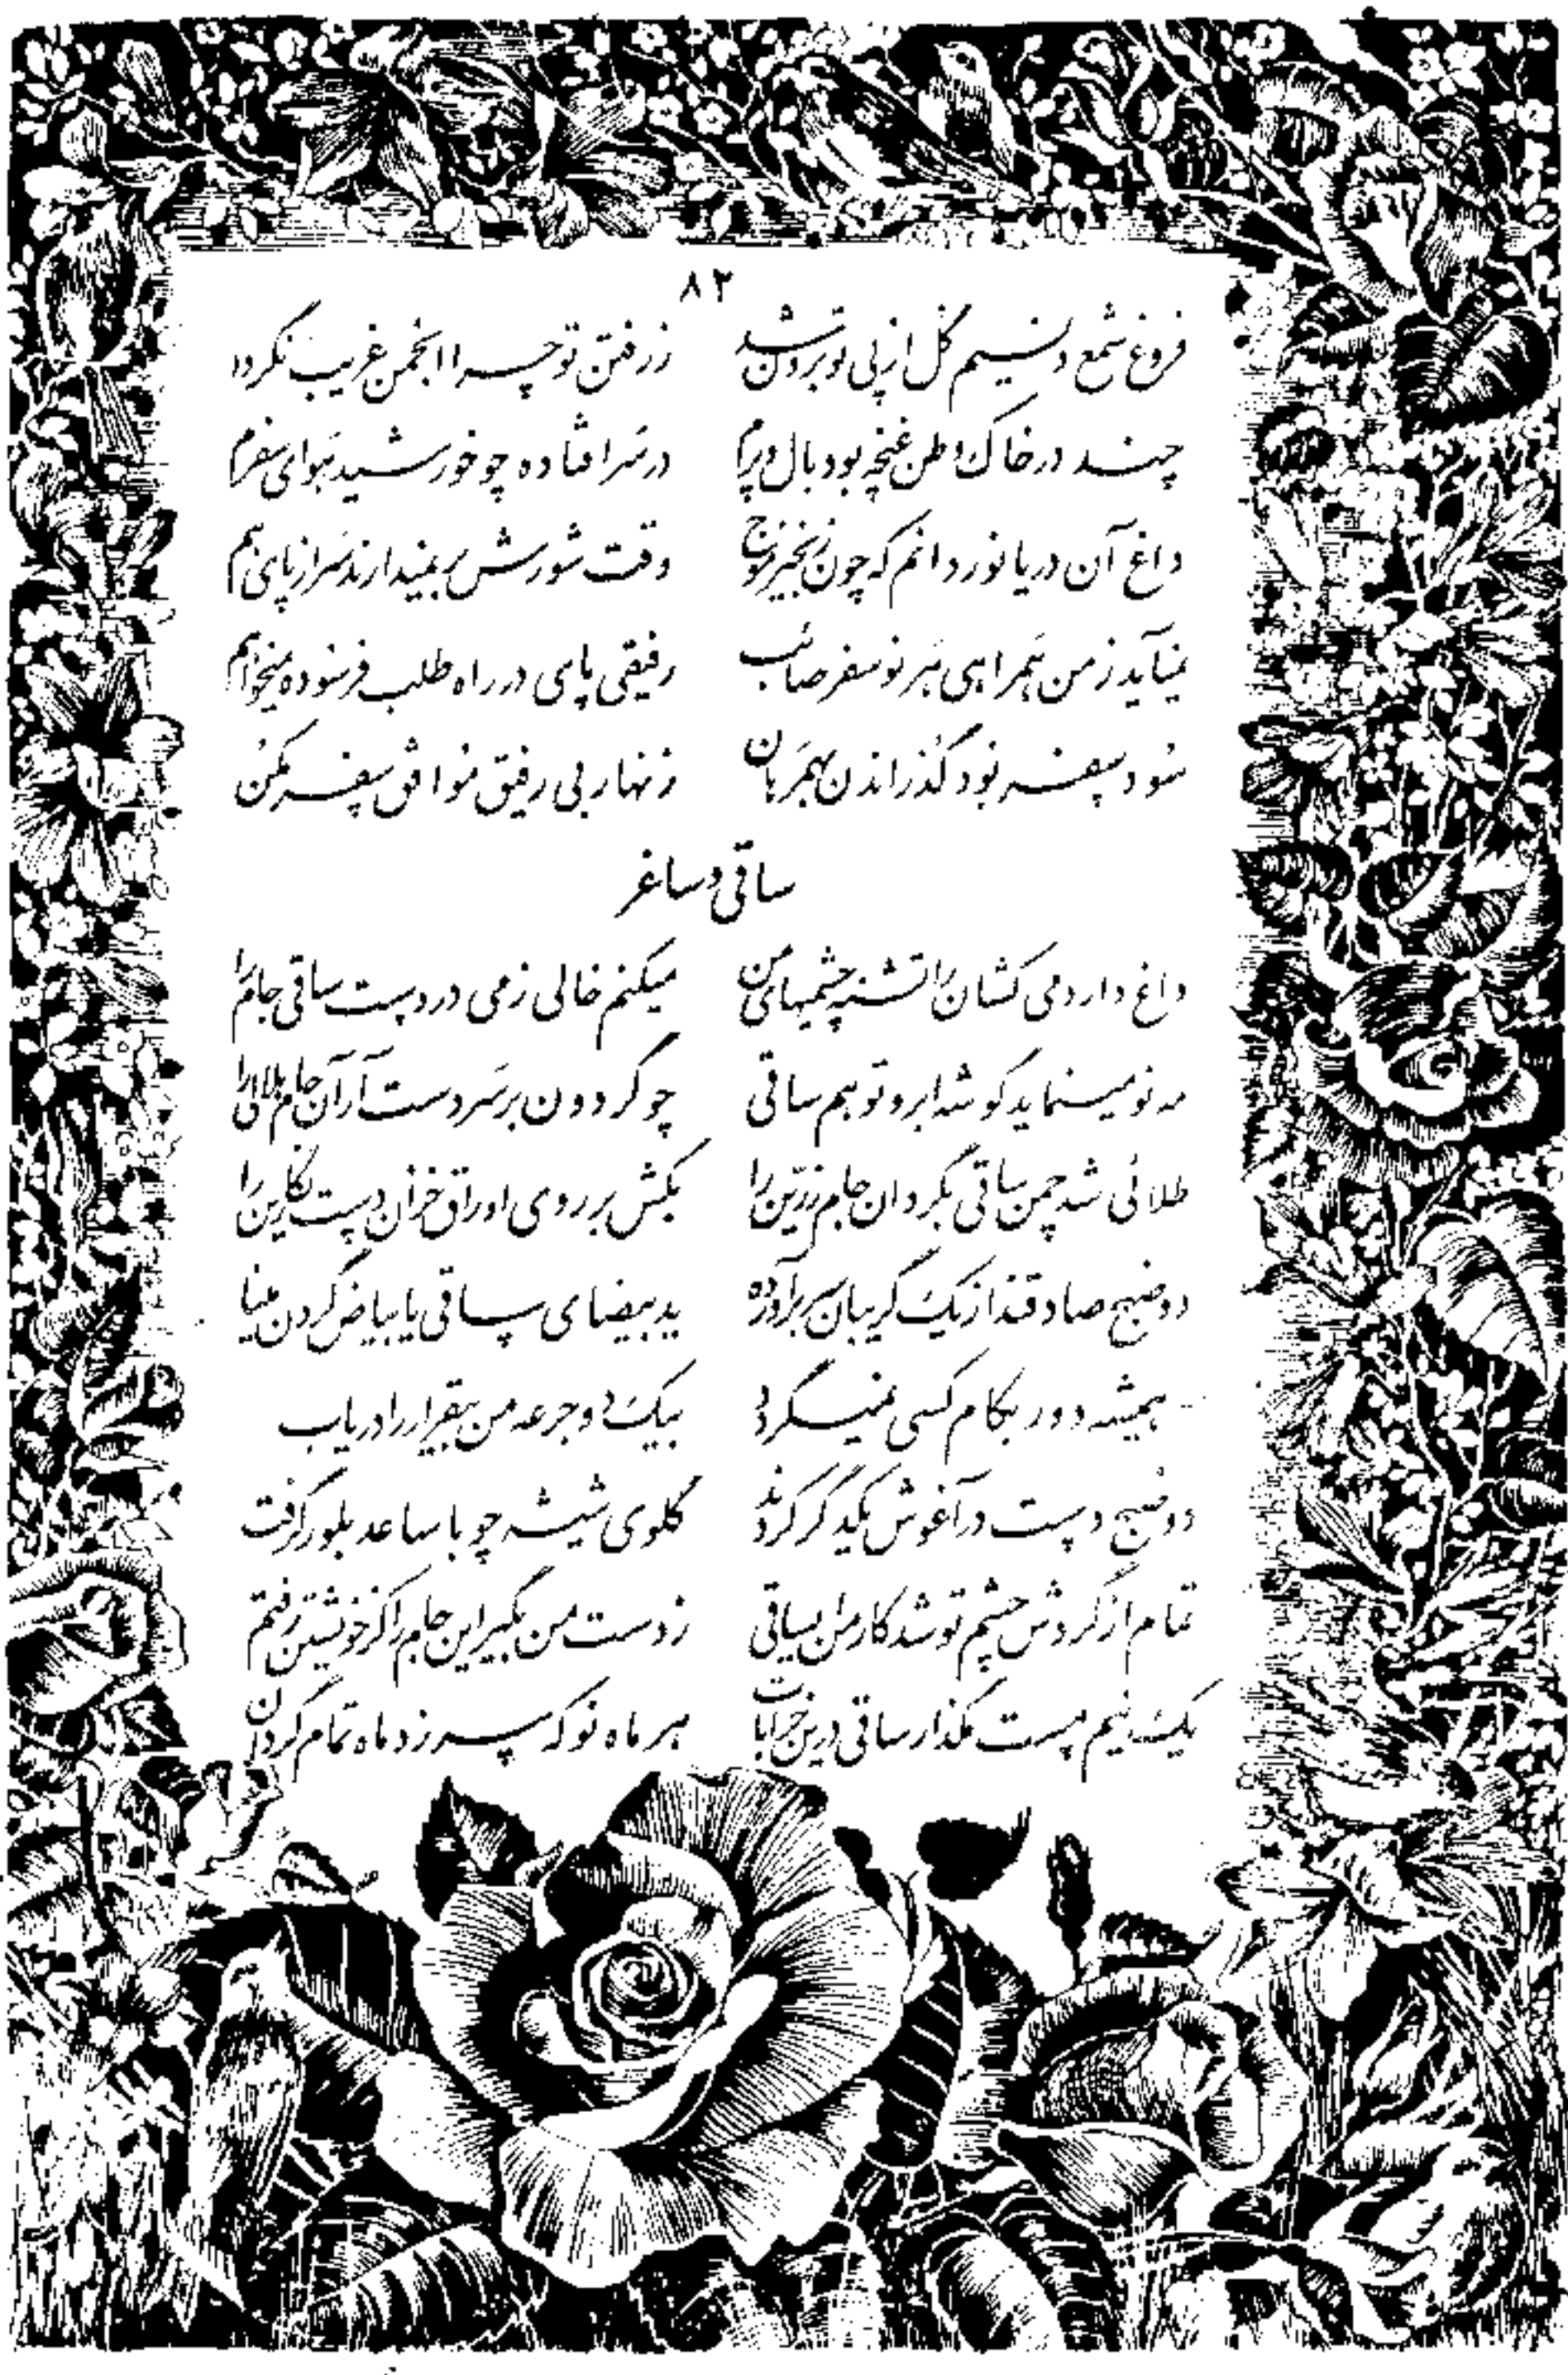 ۸۲
فروغ شمع و نسیم گل از پی تو برون شد ز رفتن تو چرا انجمن غریب نگردد
چند در خاک وطن غنچه بود بال و پرم در سر افتاده چو خورشید هوای سفرم
داغ آن دریا نوردانم که چون زنجیر موج وقت شورش بر نمیدارند سر از پای هم
نمیآید ز من همراهی هر نو سفر صائب رفیقی پای در راه طلب فرسوده میخواهم
سود سفر بود گذراندن بهمرهان زنهار بی رفیق موافق سفر مکن
ساقی و ساغر
داغ دارد می کشان را تشنه چشمیهای من میکنم خالی ز می در دست ساقی جام را
مه نو مینماید گوشه ابرو تو هم ساقی چو گردون بر سر دست آر آن جام هلالی را
طلائی شد چمن ساقی بگردان جام زرین را بکش بر روی اوراق خزان دست نگارین را
دو صبح صادقند از یک گریبان سر برآورده ید بیضای ساقی یا بیاض گردن مینا
همیشه دور بکام کسی نمیگردد بیک دو جرعه من بیقرار را دریاب
دو صبح دست در آغوش یکدگر کردند گلوی شیشه چو با ساعد بلور گرفت
تمام از گردش چشم تو شد کار من ای ساقی ز دست من بگیر این جام را کز خویشتن رفتم
یک نیم مست مگذار ساقی درین خرابات هر ماه نو که سر زد ماه تمام گردان